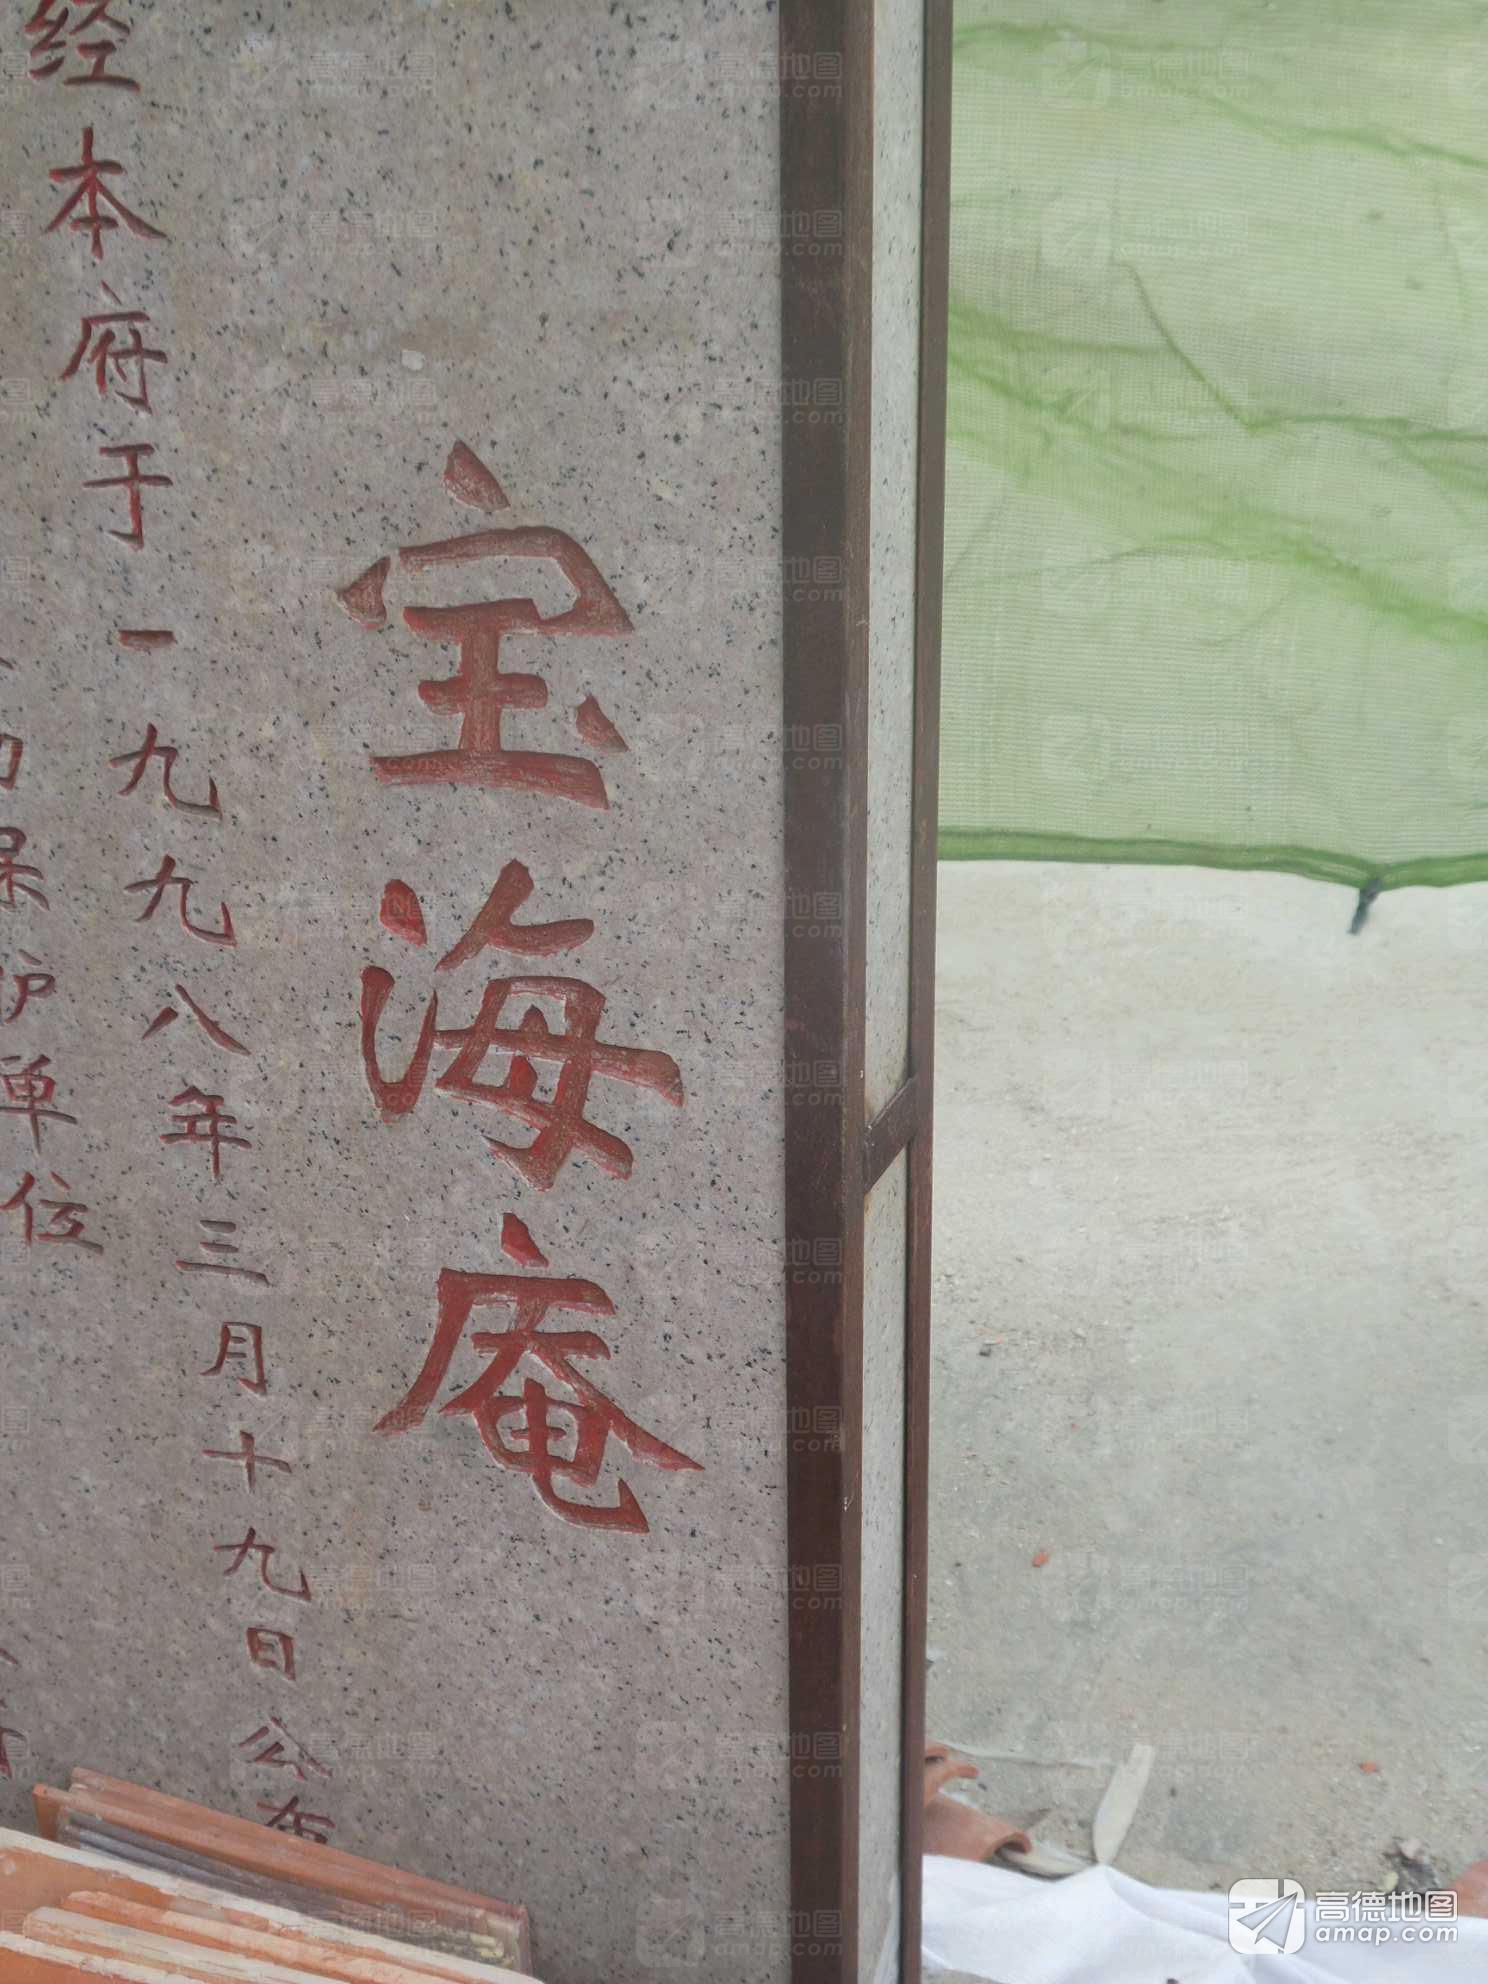 宝海庵
经本府于一九九八年三月十九日公布
保护单位
高德地图
amap.com